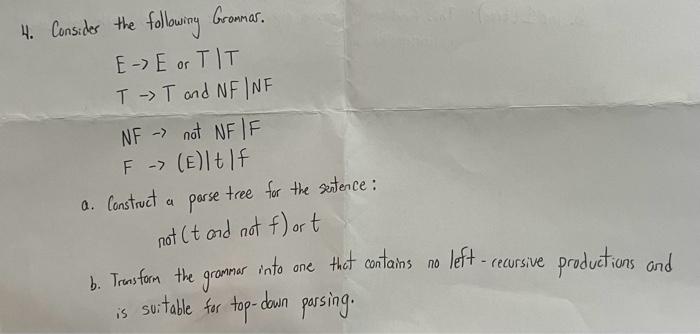 4. Consider the following Grammar.
E -> E or T | T
T -> T and NF | NF
NF -> not NF | F
F -> (E) | t | f
a. Construct a parse tree for the sentence:
not (t and not f) or t
b. Transform the grammar into one that contains no left-recursive productions and
is suitable for top-down parsing.